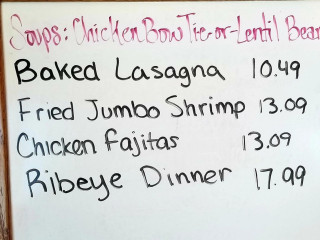 Soups: Chicken Bow Tie-or-Lentil Bean
Baked Lasagna 10.49
Fried Jumbo Shrimp 13.09
Chicken Fajitas 13.09
Ribeye Dinner 17.99